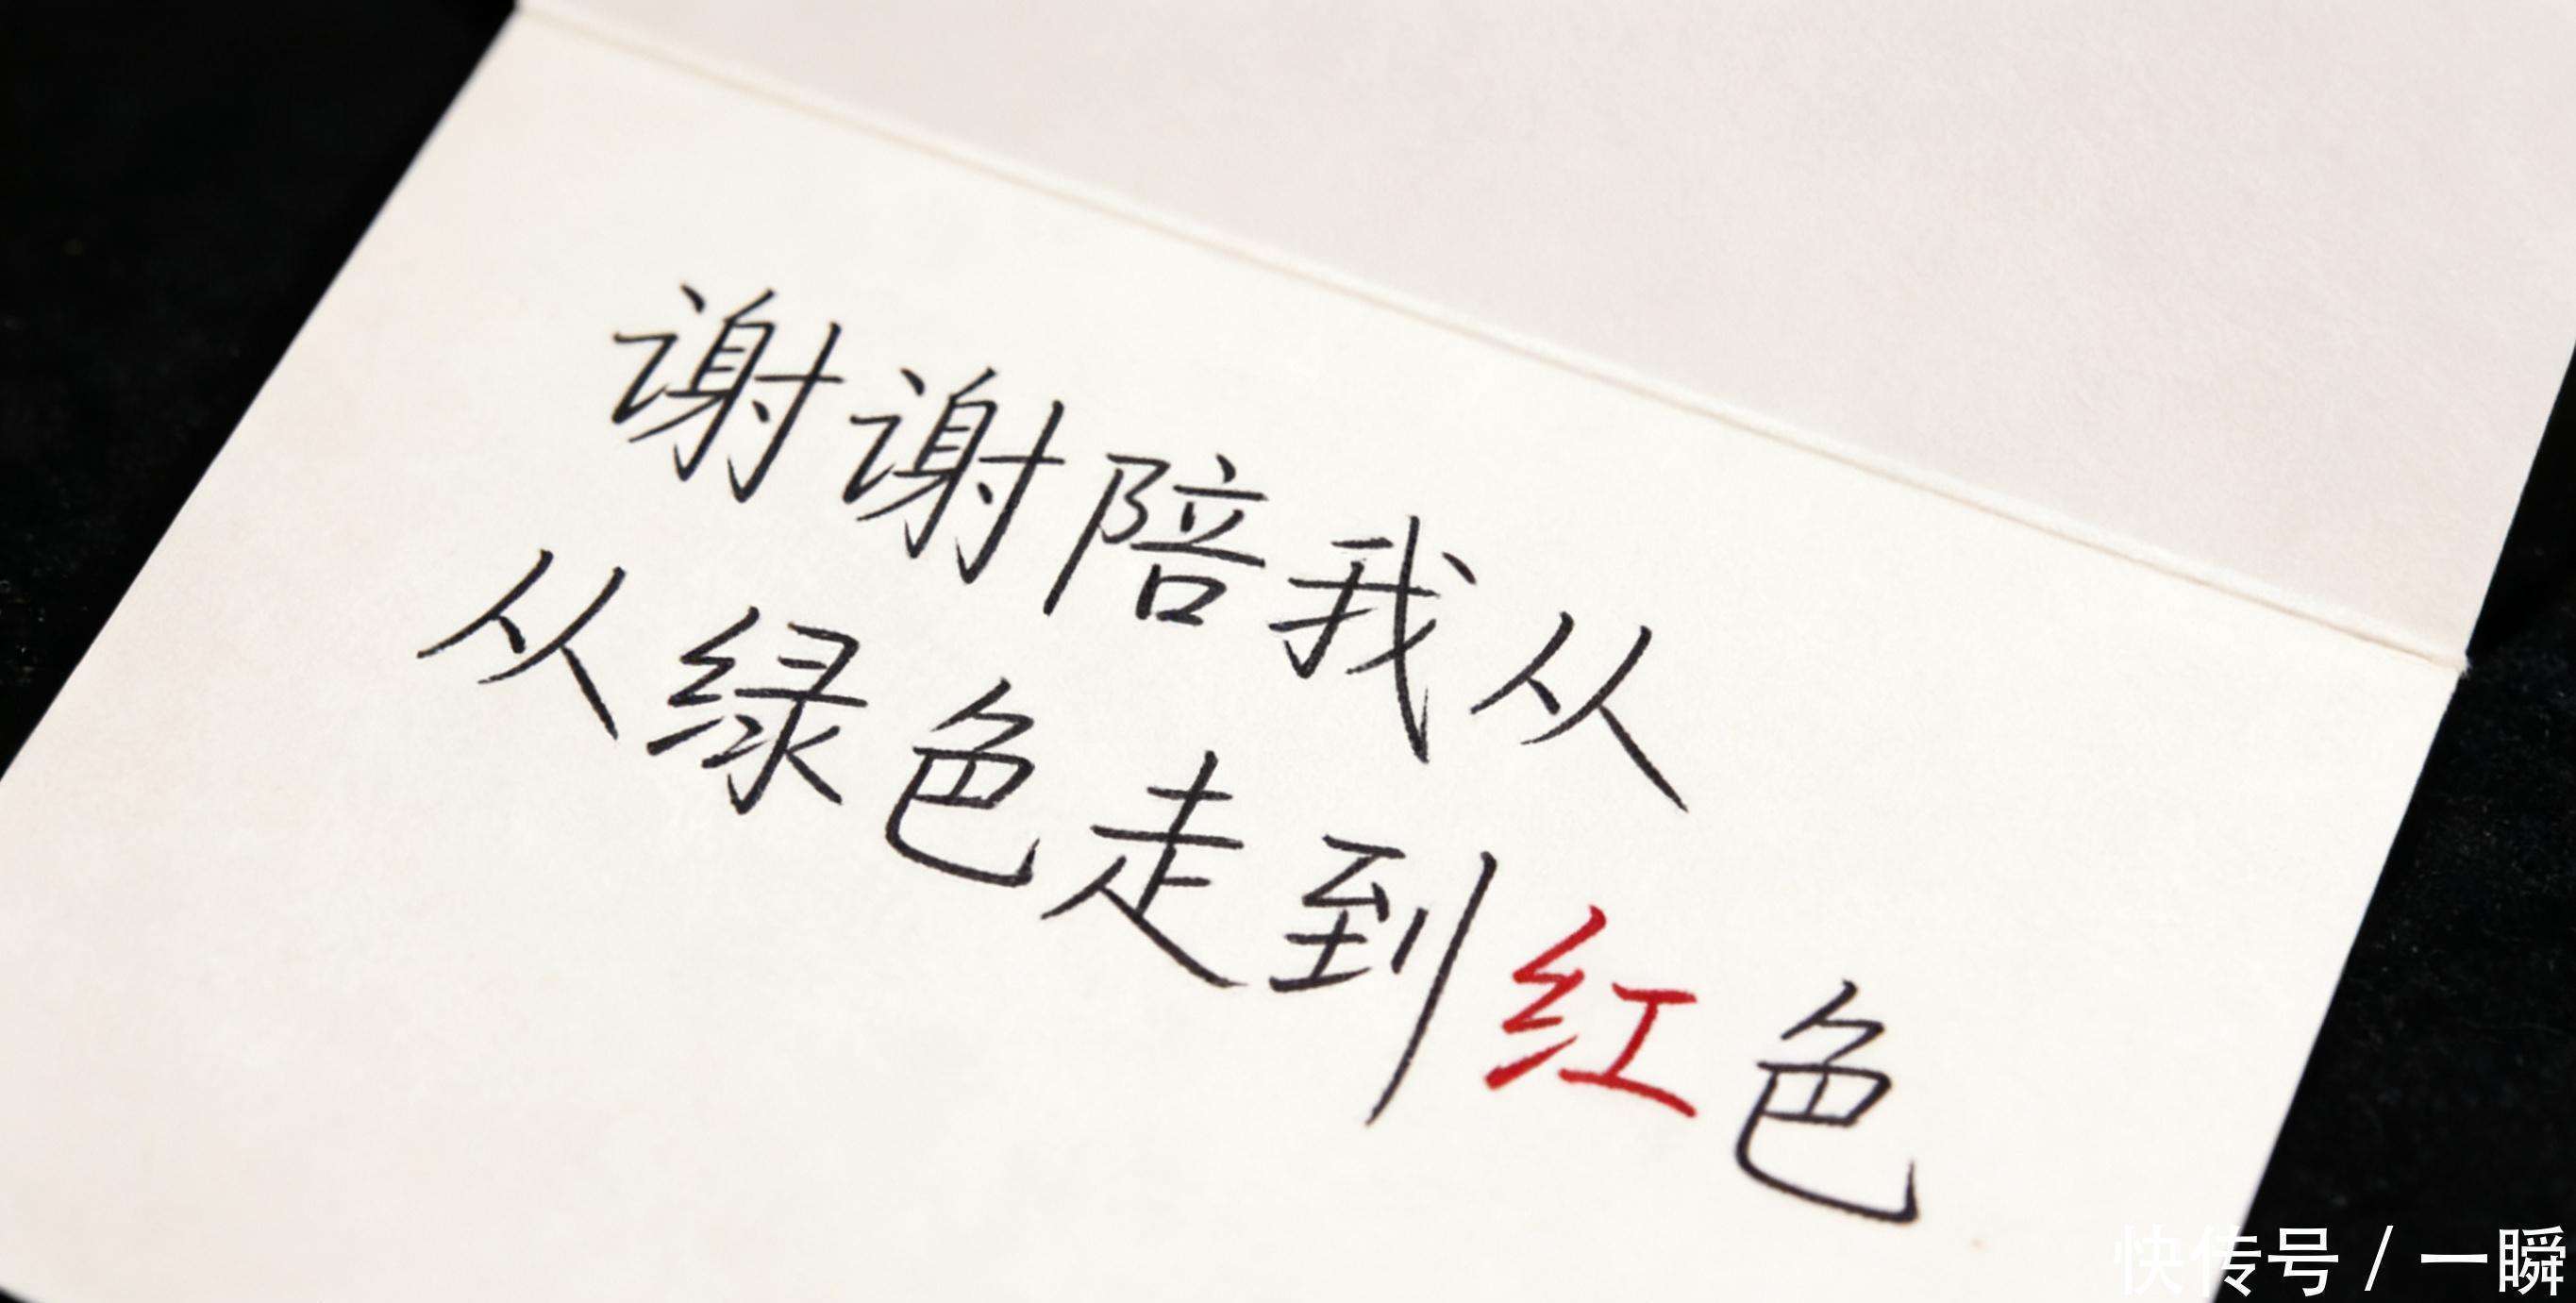 谢谢陪我从
从绿色走到红色
快传号 / 一瞬